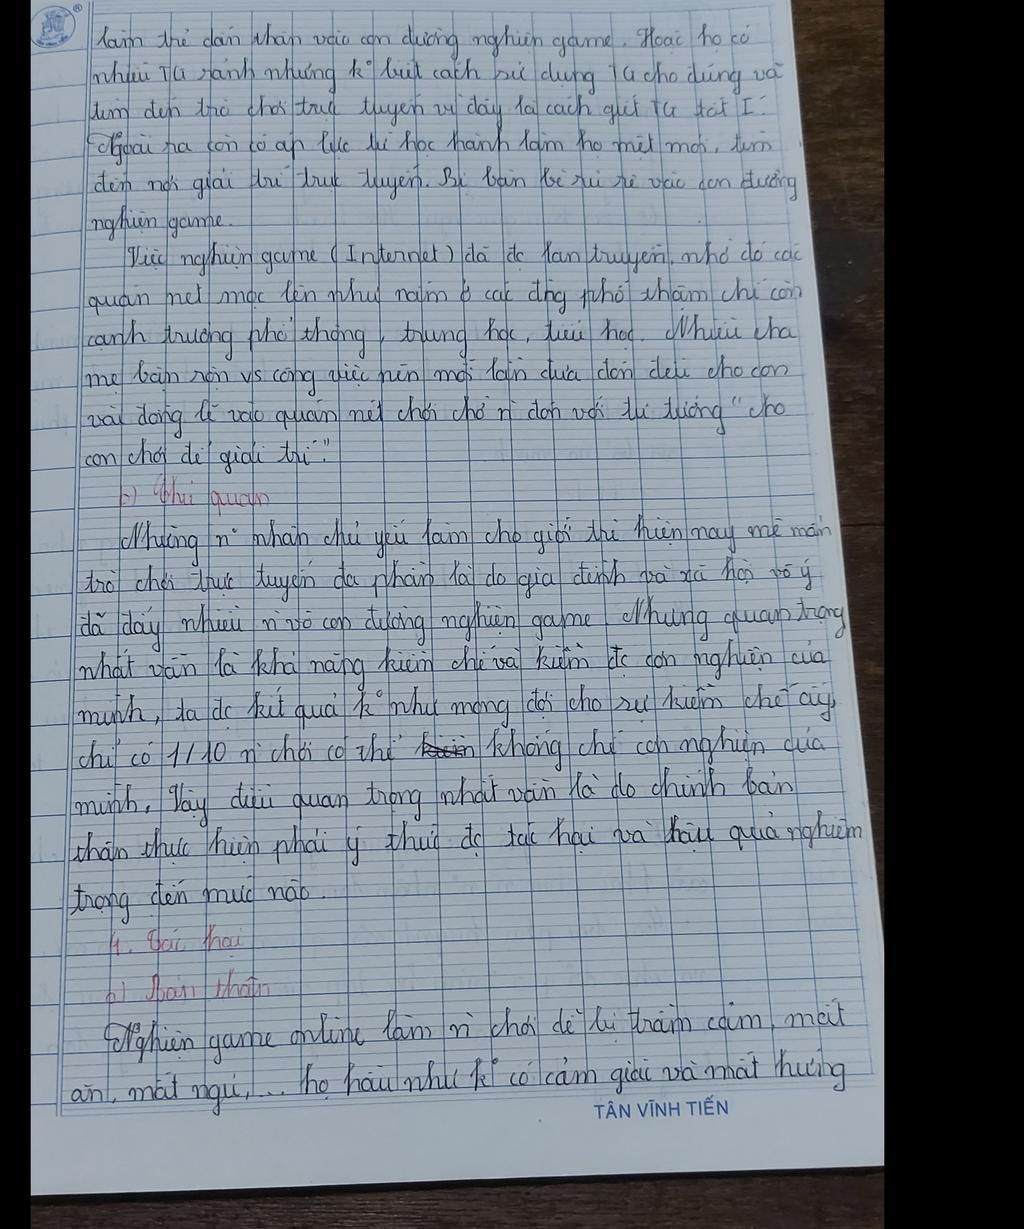 làm thế dấn thân vào con đường nghiện game. Hoặc họ có
nhiều TG rảnh nhưng k° biết cách sử dụng TG cho đúng và
tìm đến trò chơi trực tuyến vì đây là cách giết TG tốt I.
Ngoài ra còn có áp lực từ học hành làm họ mệt mỏi, tìm
đến nơi giải trí trực tuyến. Bị bạn bè rủ rê vào con đường
nghiện game.
Việc nghiện game (Internet) đã đc lan truyền, nhờ đó các
quán net mọc lên như nấm ở các đng phố thậm chí còn
cạnh trường phổ thông, trung học, tiểu học. Nhiều cha
mẹ bận rộn vs công việc nên mỗi lần đưa đón đều cho con
vài đồng lẻ vào quán nét chơi chờ n đón với tư tưởng "cho
con chơi để giải trí".
b) Chủ quan
Những n° nhân chủ yếu làm cho giới trẻ hiện nay mê mẩn
trò chơi trực tuyến đa phần là do gia đình và xã hội vô ý
đã đẩy nhiều n vô con đường nghiện game. Nhưng quan trọng
nhất vẫn là khả năng kiềm chế và kiểm đc cơn nghiện của
mình, ta đc kết quả k° như mong đợi cho sự kiềm chế ấy,
chỉ có 1/10 n chơi có thể khống chế cơn nghiện của
mình. Vậy điều quan trọng nhất vẫn là do chính bản
thân thực hiện phải ý thức đc tác hại và hậu quả nghiêm
trọng đến mức nào.
4. Tác hại
a) Bản thân
Nghiện game online làm n chơi dễ bị trầm cảm, mất
ăn, mất ngủ,... họ hầu như k° có cảm giác và mất hướng
TÂN VĨNH TIẾN